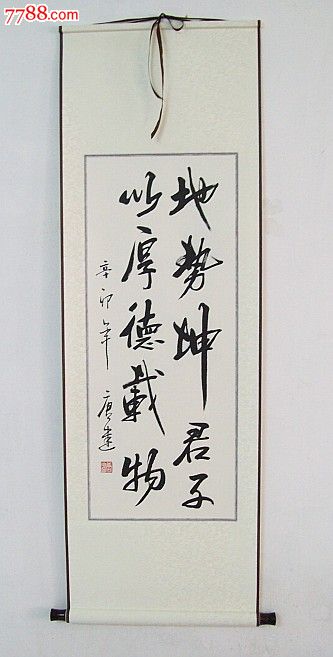 7788.com
地势坤君子
以厚德载物
辛卯年 唐建